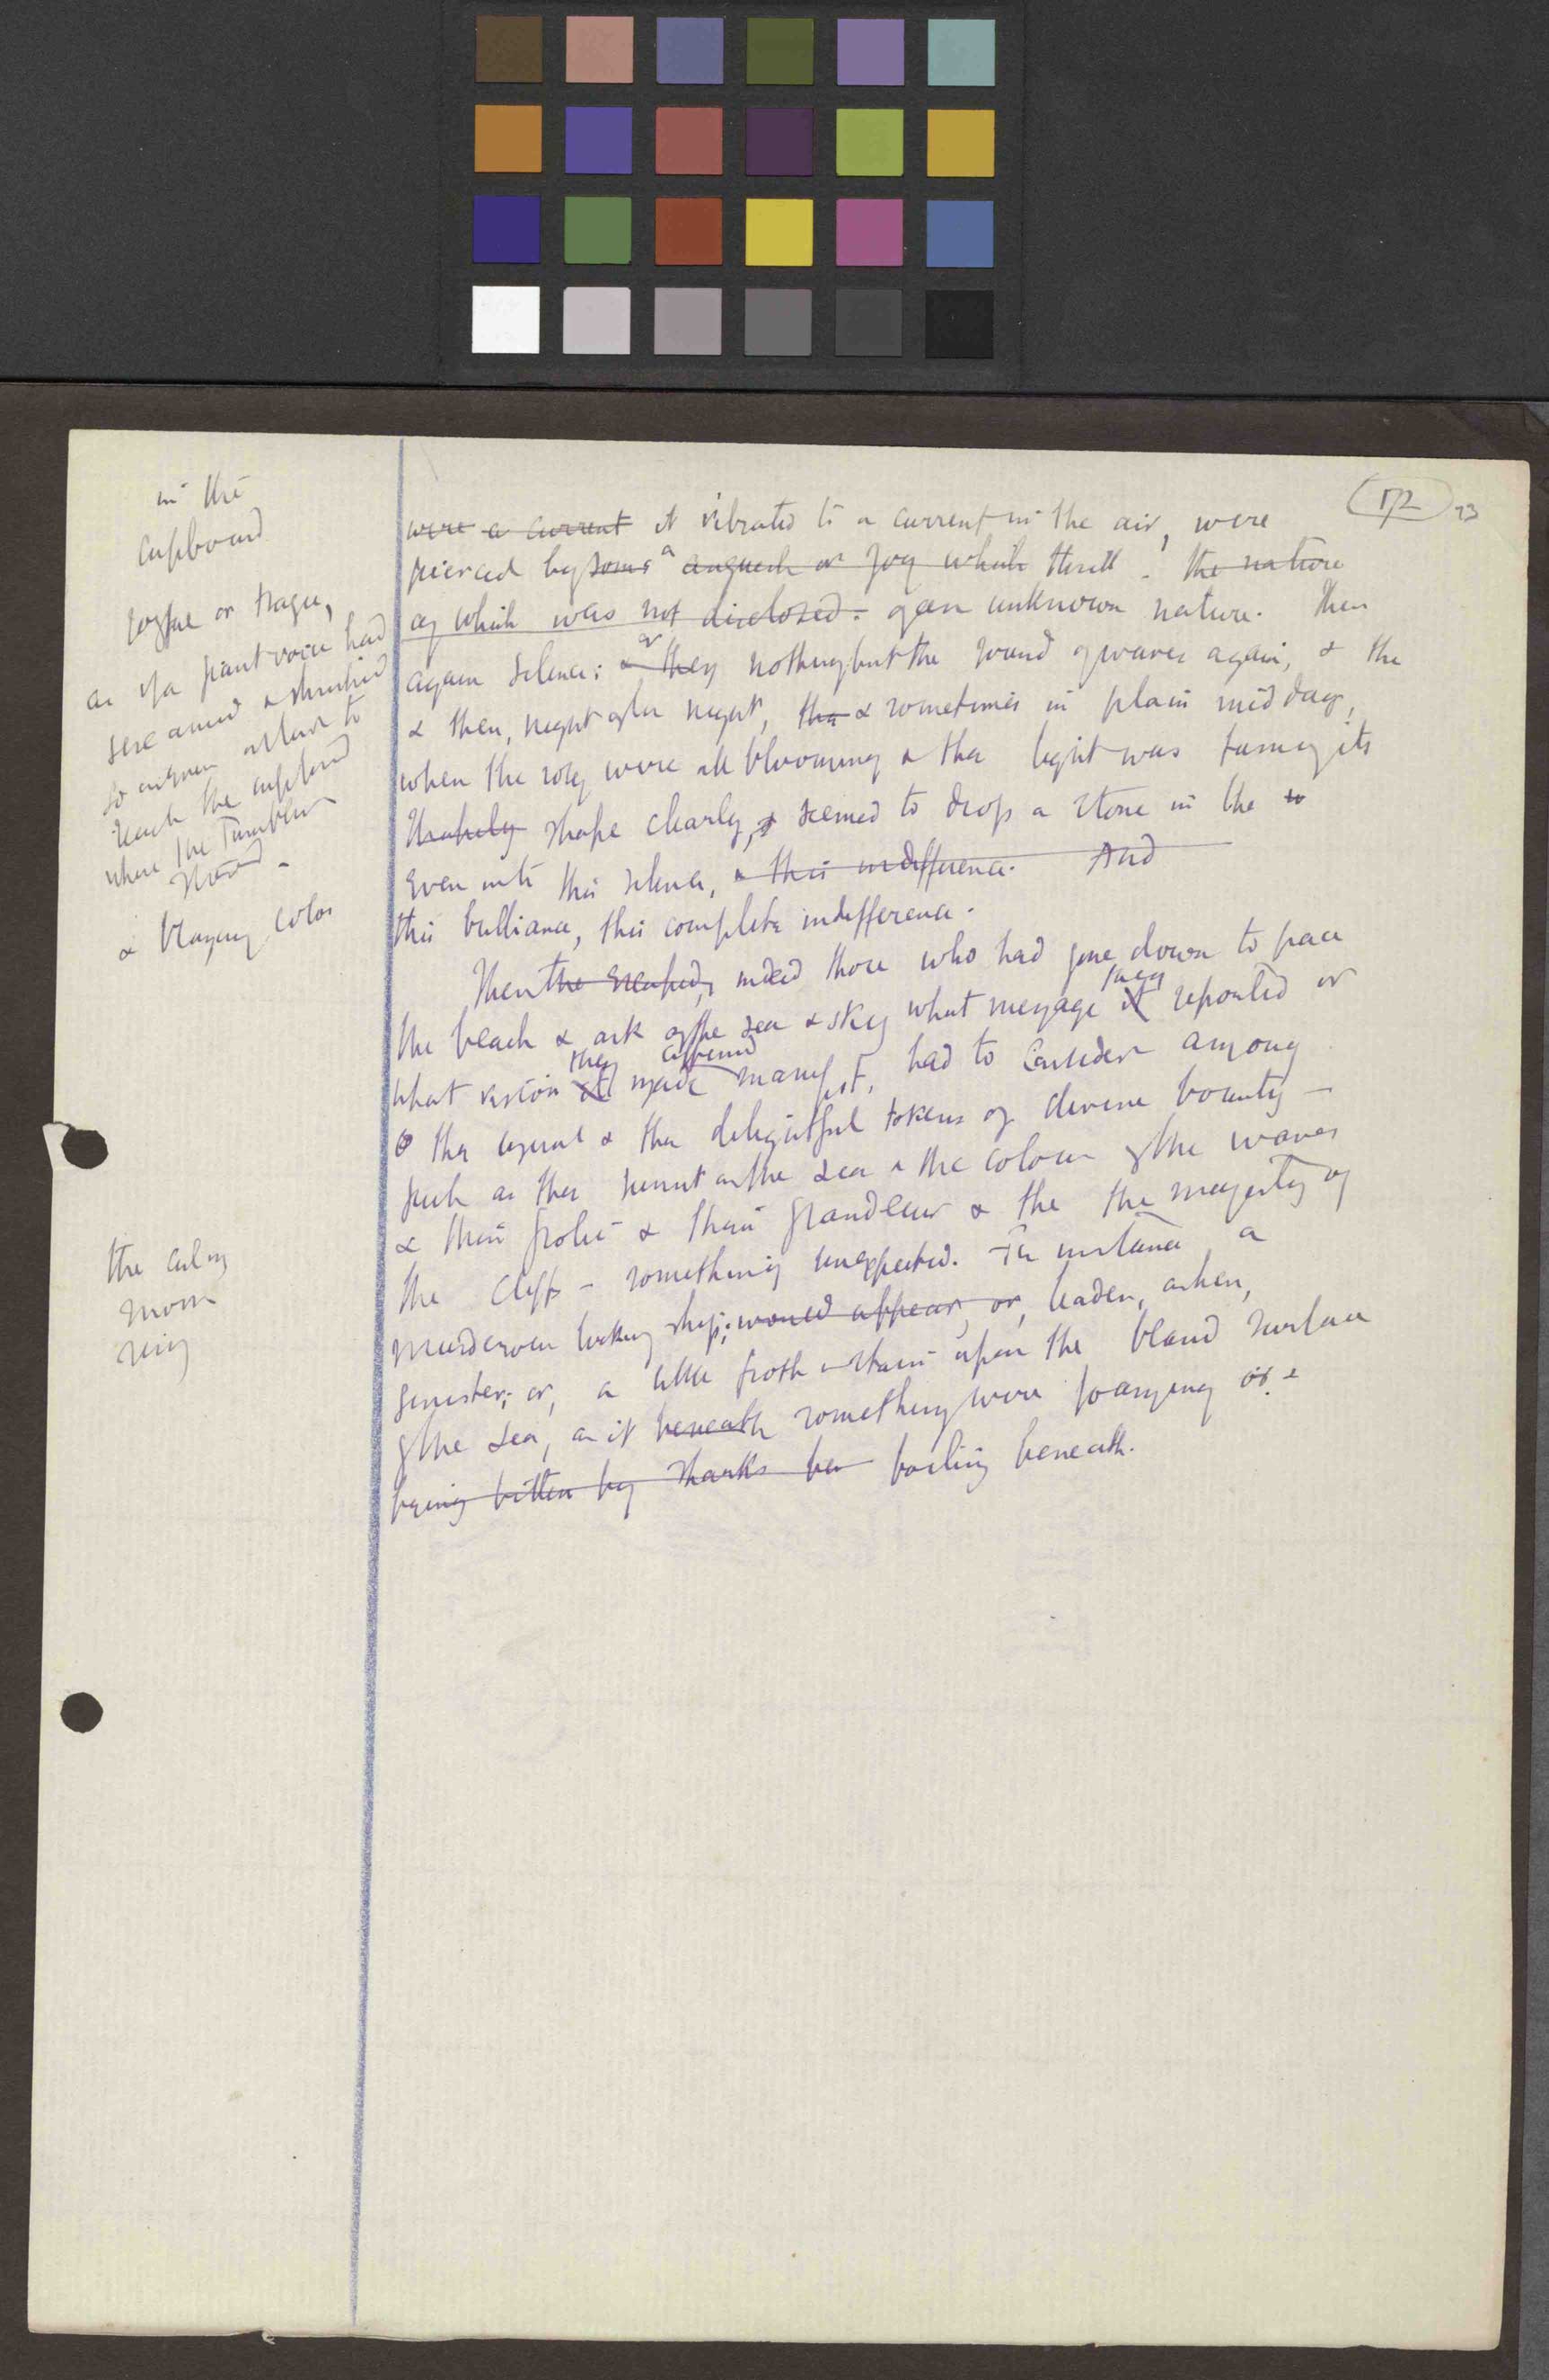 172 23
in the
cupboard
joyful or tragic,
as if a giant voice had
screamed & shrieked
so in agony as to
reach the cupboard
where the Tumblers
stood -
& blazing color
were a current it vibrated to a current in the air, were
pierced by some a anguish or joy which thrill. the nature
of which was not disclosed. of an unknown nature. Then
again silence; or & they nothing but the sound of waves again, & the
& then, night after night, the & sometimes in plain mid day,
when the roses were all blooming & the light was turning its
shape clearly, seemed to drop a stone in the to
even into this silence, & this indifference. And
this brilliance, this complete indifference.
Then the indeed those who had gone down to pace
the beach & ask of the sea & sky what message it they reported or
what vision it they made affirmed manifest, had to consider among
the usual & the delightful tokens of divine bounty -
such as the sunset on the sea & the colour of the waves
& their frolic & their grandeur & the the majesty of
the cliffs - something unexpected. For instance a
murderous looking ship; would appear, or, leaden, ashen,
sinister; or, a little froth & stain upon the bland surface
of the sea, as if beneath something were foaming or &
being bitten by sharks be boiling beneath.
the calm
morn
ing